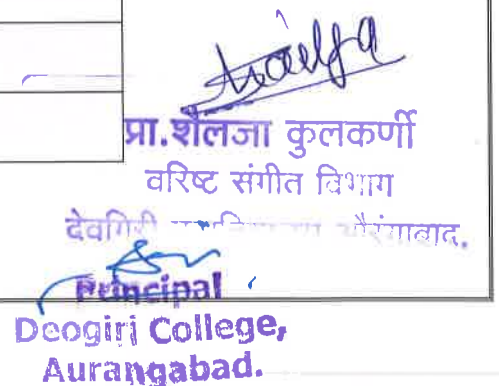 प्रा.शैलजा कुलकर्णी
वरिष्ट संगीत विभाग
देवगिरी औरंगाबाद.
Principal
Deogiri College,
Aurangabad.